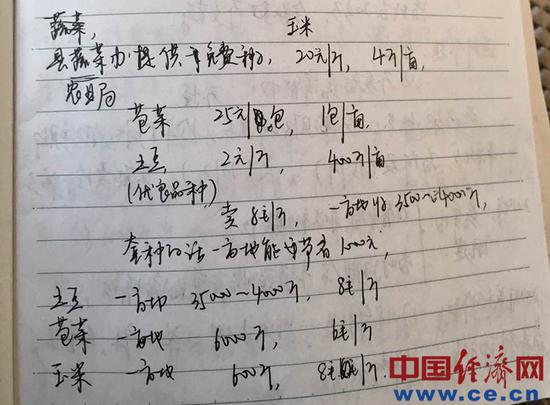 蔬菜, 玉米
县蔬菜办提供免费种, 20元/斤, 4斤/亩,
农业局
苞菜 25元/包, 1包/亩
土豆 2元/斤, 400斤/亩
(优良品种)
卖 8毛/斤, 一亩地收3500~4000斤,
套种的话一亩地能节省1000元,
土豆 一亩地 3500~4000斤, 8毛/斤
苞菜 一亩地 6000斤 6毛/斤
玉米 一亩地 600斤, 8毛/斤.
中国经济网
www.ce.cn